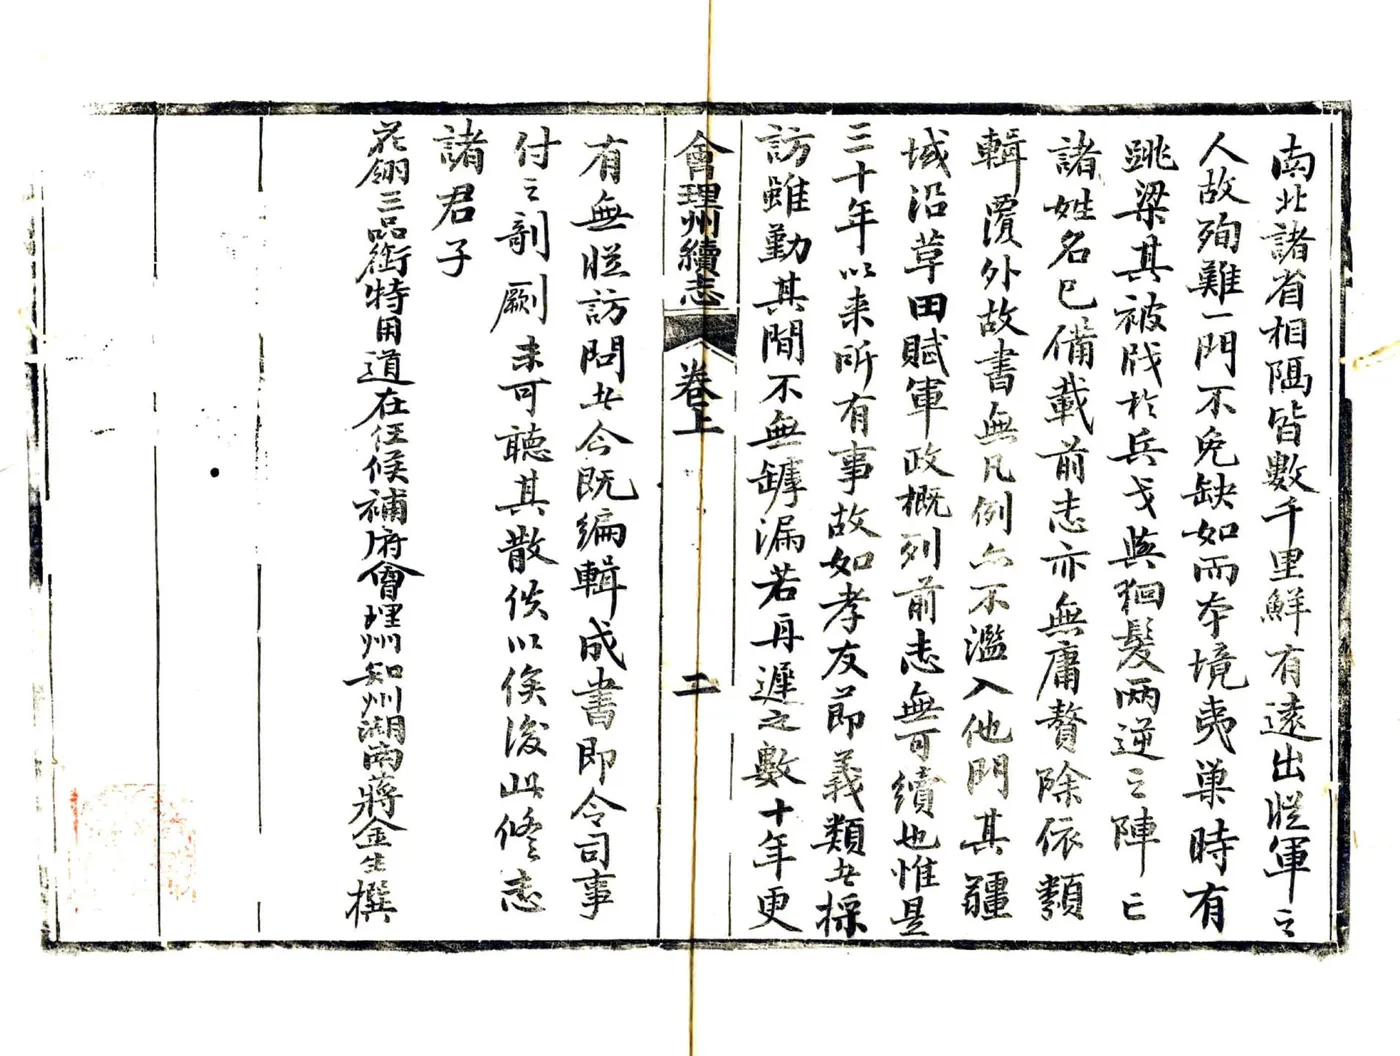 南北諸省相隔皆數千里鮮有遠出從軍之
人故殉難一門不免缺如而本境夷巢時有
跳梁其被戕於兵戈與猓髮兩逆之陣亡
諸姓名已備載前志亦無庸贅除依類
輯覆外故書無凡例亦不濫入他門其疆
域沿革田賦軍政概列前志無可續也惟是
三十年以来所有事故如孝友節義類者採
訪雖勤其間不無罅漏若再遲之數十年更
會理州續志
卷上
二
有無從訪問者今既編輯成書即令司事
付之剞劂未可聽其散佚以俟後此修志
諸君子
花翎三品銜特用道在任候補府會理州知州湖南蔣金生撰